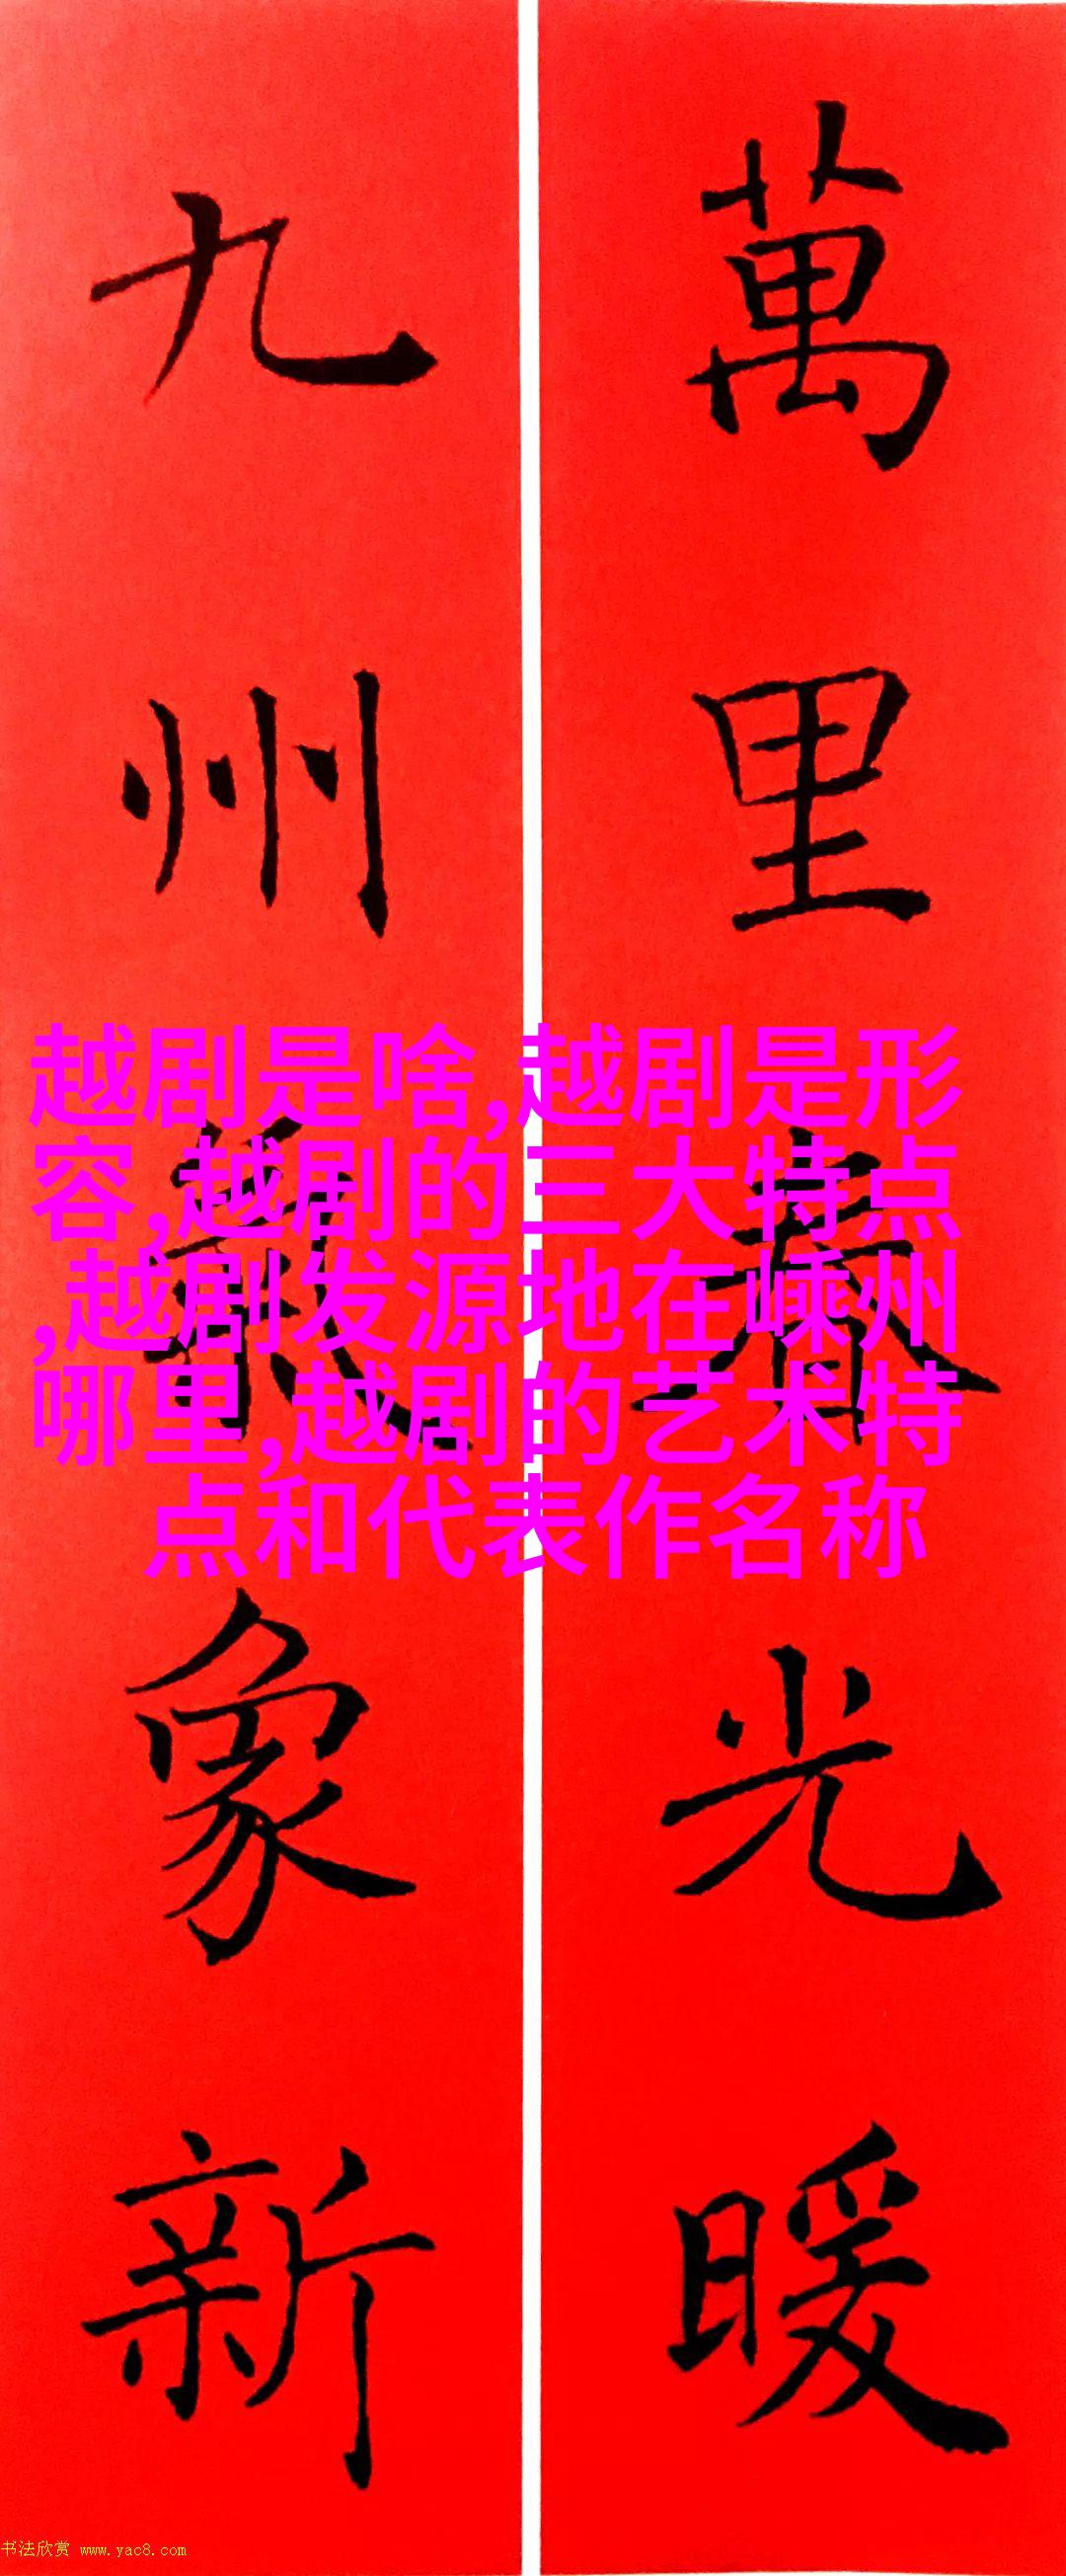 萬里春光暖
九州氣象新
越剧是啥,越剧是形
容,越剧的三大特点
,越剧发源地在嵊州
哪里,越剧的艺术特
点和代表作名称
书法欣赏 www.yac8.com